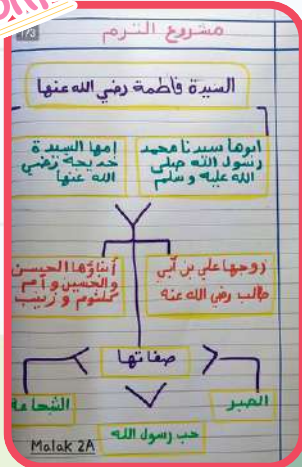 1/3
مشروع الترم
السيدة فاطمة رضي الله عنها
ابوها سيدنا محمد
رسول الله صلى
الله عليه وسلم
إمها السيدة
خديجة رضي
الله عنها
زوجها علي بن آبي
طالب رضي الله عنه
أبناؤها الحسن
والحسين وأم
كلثوم وزينب
صفاتها
الصبر
الشجاعة
حب رسول الله
Malak 2A